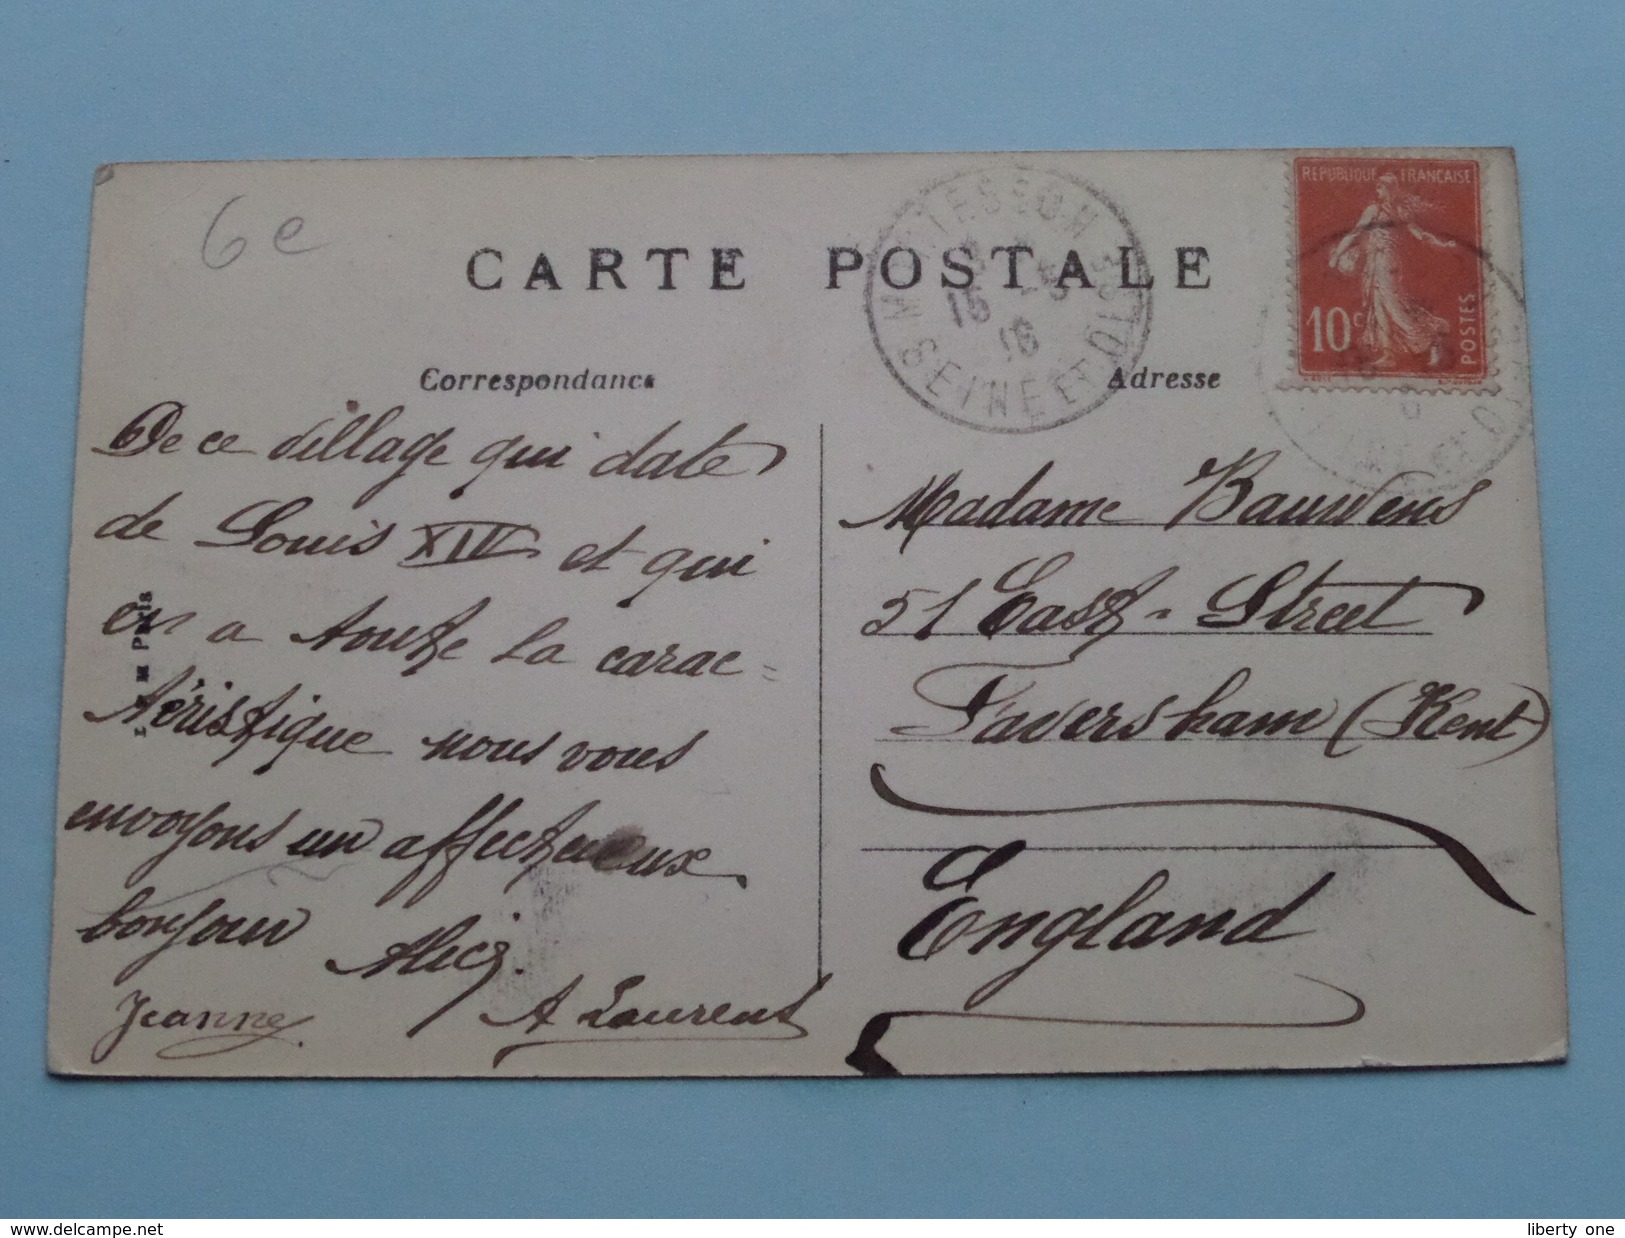 6e
CARTE POSTALE
MONTESSON
SEINE ET OISE
15 -5
16
REPUBLIQUE FRANÇAISE
10c
POSTES
Correspondance
Adresse
De ce village qui date
de Louis XIV et qui
en a toute la carac=
téristique nous vous
envoyons un affectueux
bonjour
Alice.
Jeanne.
A Laurent
PARIS
Madame Bauwens
51 East-Street
Faversham (Kent)
England
www.delcampe.net
liberty_one